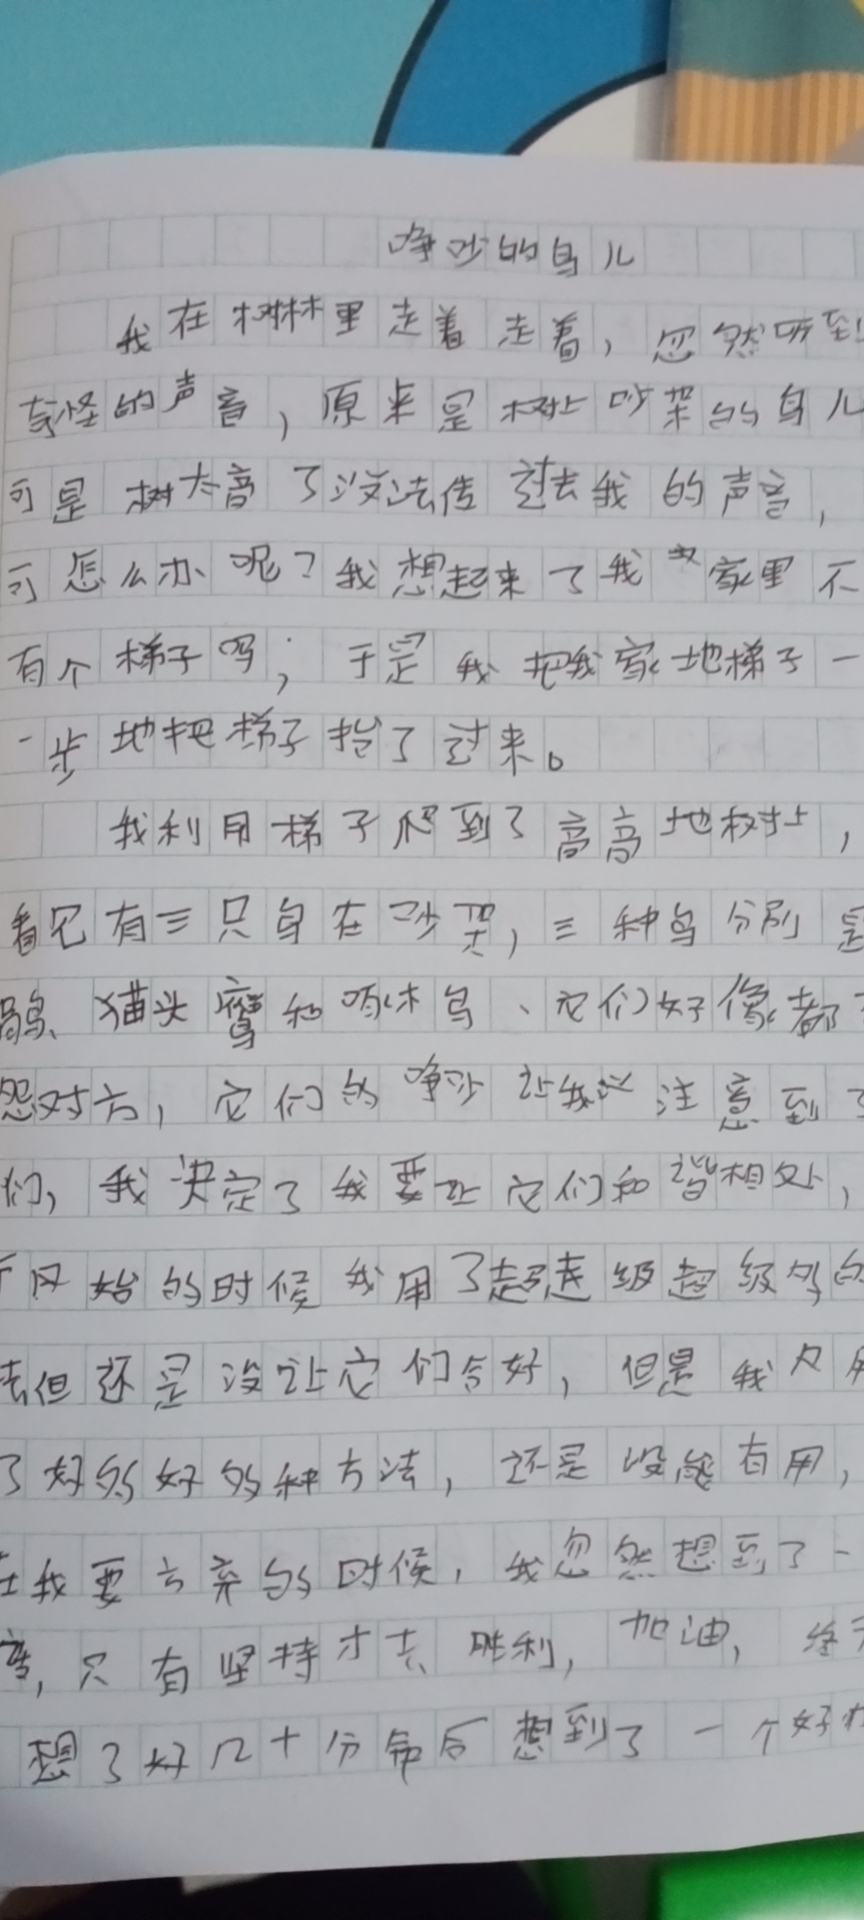 争吵的鸟儿
我在树林里走着走着，忽然听到
奇怪的声音，原来是树上吵架的鸟儿
可是树太高了没法传过去我的声音，
可怎么办呢？我想起来了我家里不
有个梯子吗；于是我把我家地梯子一
一步地把梯子抬了过来。
我利用梯子爬到了高高地树上，
看见有三只鸟在吵架，三种鸟分别是
鹉、猫头鹰和啄木鸟、它们好像都
怨对方，它们的争吵让我注意到了
们，我决定了我要让它们和谐相处，
开始的时候我用了超级超级多的
法但还是没让它们合好，但是我又用
了好多好多种方法，还是没能有用，
在我要方弃的时候，我忽然想到了一
只有坚持才去胜利，加油，终于
想了好几十分钟后想到了一个好